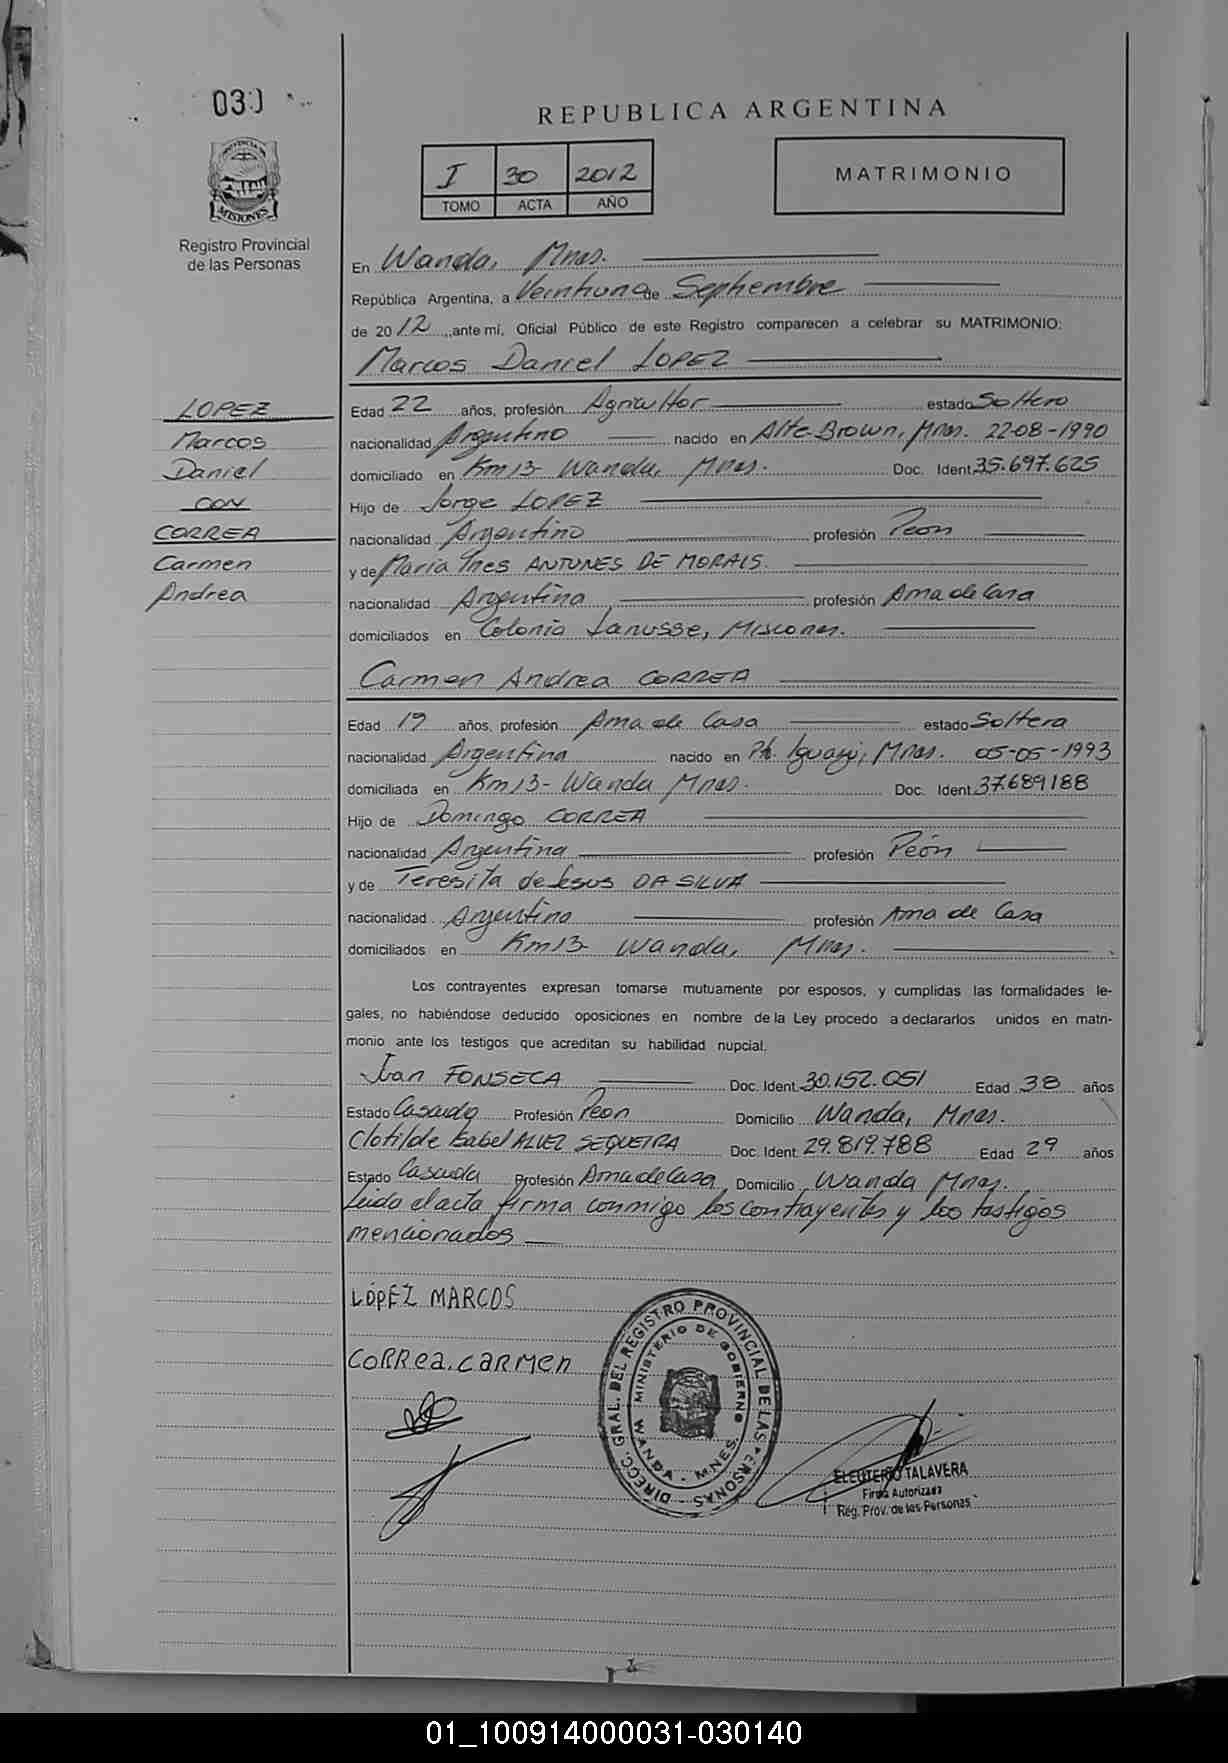 030
PROVINCIA DE
MISIONES
Registro Provincial
de las Personas
REPUBLICA ARGENTINA
I 30 2012
TOMO ACTA AÑO
MATRIMONIO
En Wanda, Mnes.
República Argentina, a Veintiuno de Septiembre
de 2012 ante mí, Oficial Público de este Registro comparecen a celebrar su MATRIMONIO:
Marcos Daniel LOPEZ
LOPEZ
Marcos
Daniel
CON
CORREA
Carmen
Andrea
Edad 22 años, profesión Agricultor estado Soltero
nacionalidad Argentino nacido en Alte. Brown, Mnes. 22-08-1990
domiciliado en Km13- Wanda, Mnes. Doc. Ident. 35.697.625
Hijo de Jorge LOPEZ
nacionalidad Argentino profesión Peon
y de Maria Ines ANTUNES DE MORAIS.
nacionalidad Argentina profesión Ama de Casa
domiciliados en Colonia Lanusse, Misiones.
Carmen Andrea CORREA
Edad 19 años, profesión Ama de Casa estado Soltera
nacionalidad Argentina nacido en Pto. Iguazú, Mnes. 05-05-1993
domiciliada en Km13- Wanda Mnes. Doc. Ident. 37.689188
Hijo de Domingo CORREA
nacionalidad Argentina profesión Peón
y de Teresita de Jesus DA SILVA
nacionalidad Argentina profesión Ama de Casa
domiciliados en Km13- Wanda, Mnes.
Los contrayentes expresan tomarse mutuamente por esposos, y cumplidas las formalidades le-
gales, no habiéndose deducido oposiciones en nombre de la Ley procedo a declararlos unidos en matri-
monio ante los testigos que acreditan su habilidad nupcial.
Ivan FONSECA Doc. Ident. 30.152.051 Edad 38 años
Estado Casado Profesión Peon Domicilio Wanda, Mnes.
Clotilde Isabel ALVEZ SEQUEIRA Doc. Ident. 29.819.788 Edad 29 años
Estado Casada Profesión Ama de Casa Domicilio Wanda Mnes.
Leido el acta firma conmigo los contrayentes y los testigos
mencionados
LÓPEZ MARCOS
CORRea.CARMEN
DIRECC. GRAL. DEL REGISTRO PROVINCIAL DE LAS PERSONAS
MINISTERIO DE GOBIERNO
WANDA - MNES.
ELEUTERIO TALAVERA
Firma Autorizada
Reg. Prov. de las Personas
01_100914000031-030140